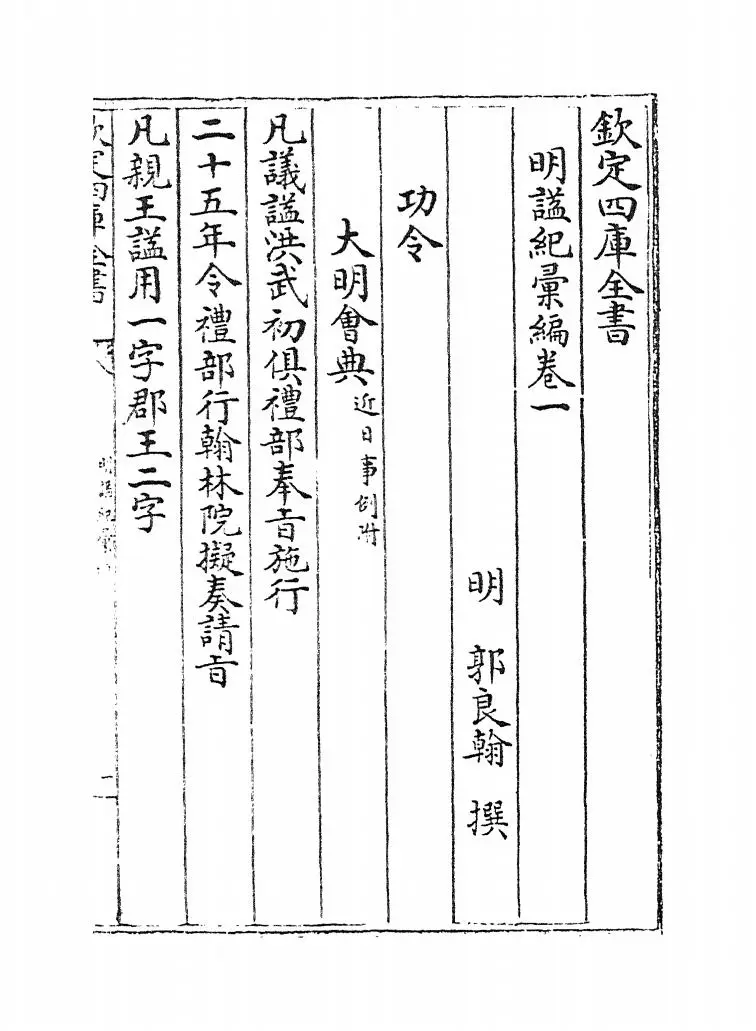 欽定四庫全書
明謚紀彚編卷一
明 郭良翰 撰
功令
大明會典近日事例附
凡議謚洪武初俱禮部奉旨施行
二十五年令禮部行翰林院擬奏請旨
凡親王謚用一字郡王二字
欽定四庫全書
明謚紀彚編